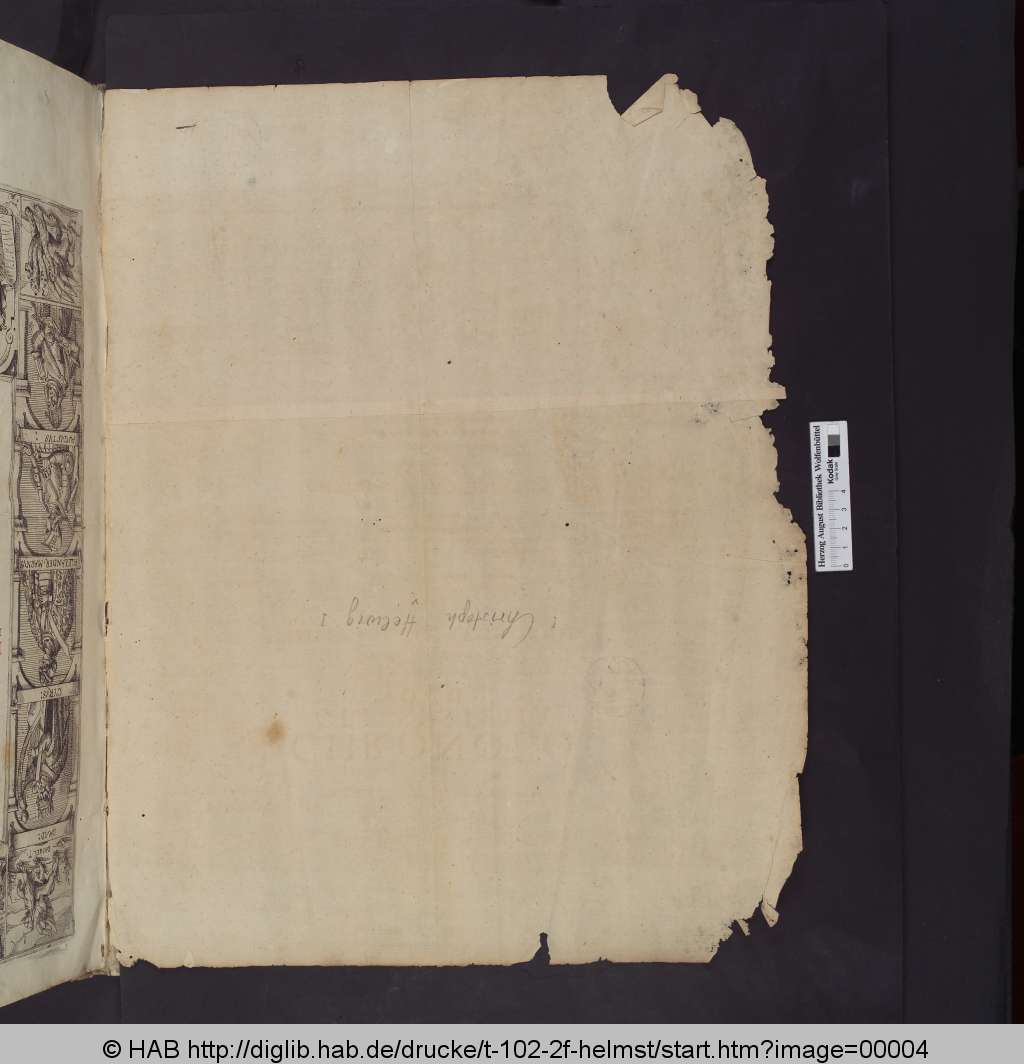 AUGUSTUS
ALEXANDER MAGNUS
CYRUS
DAVID
: Christoph Helwig :
Herzog August Bibliothek Wolfenbüttel
Kodak
0 1 2 3 4
© HAB http://diglib.hab.de/drucke/t-102-2f-helmst/start.htm?image=00004